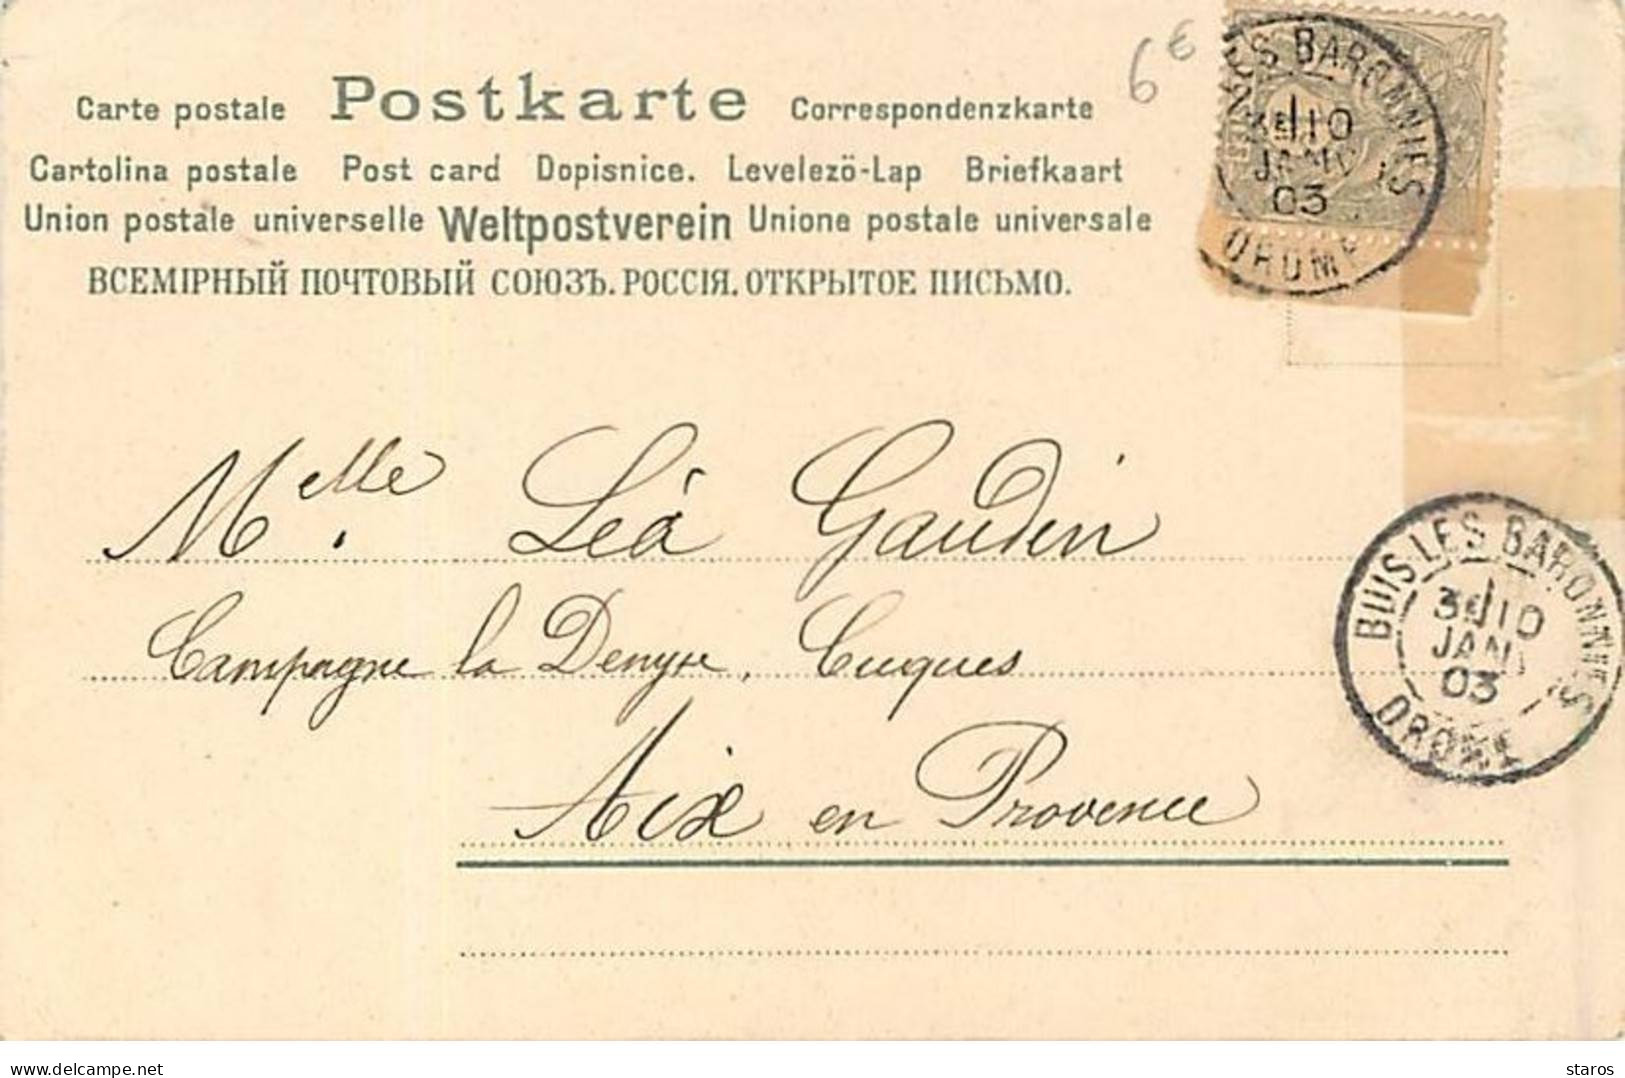 6€
Carte postale Postkarte Correspondenzkarte
Cartolina postale Post card Dopisnice. Levelezö-Lap Briefkaart
Union postale universelle Weltpostverein Unione postale universale
ВСЕМІРНЫЙ ПОЧТОВЫЙ СОЮЗЪ. РОССІЯ. ОТКРЫТОЕ ПИСЬМО.
LES BARONNIES
3E 10
JANV
03
DROME
Melle Léa Gaudin
Campagne la Cuques
Aix en Provence
BUIS LES BARONNIES
3E 10
JANV
03
DROME
delcampe.net
staros